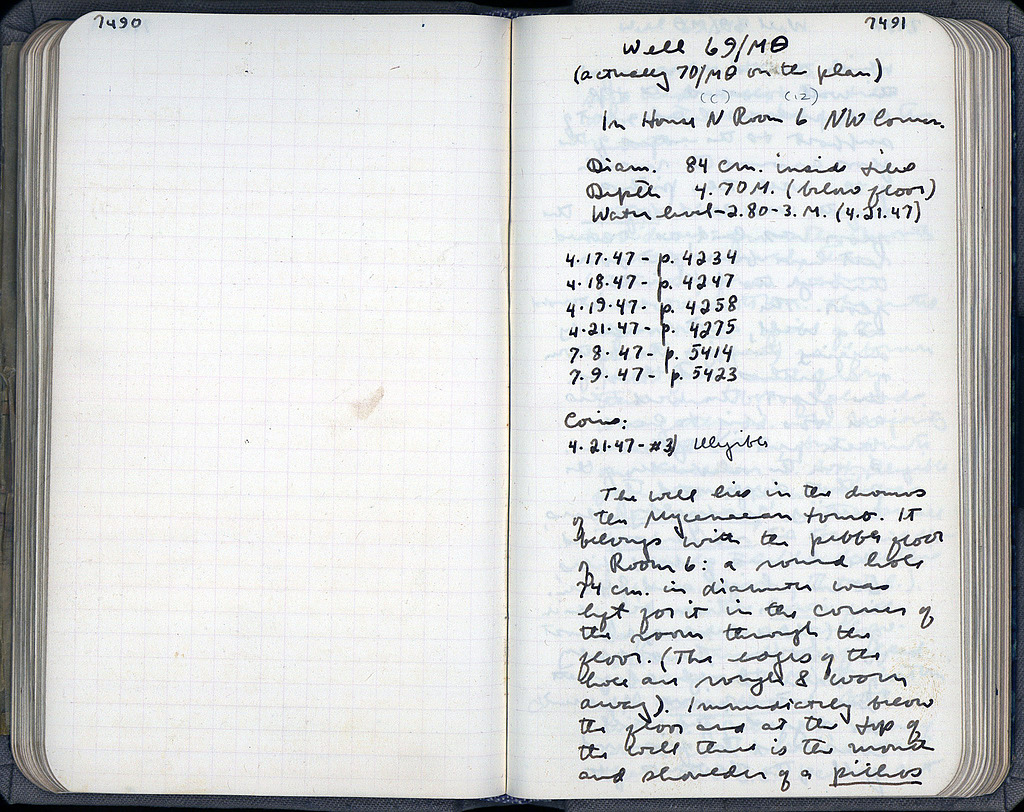 7490
7491
Well 69/ΜΘ
(actually 70/ΜΘ on the plan)
(C) (12)
In House N Room 6 NW Corner.
Diam. 84 cm. inside tiles
Depth 4.70 M. (below floor)
Water level - 2.80-3. M. (4.21.47)
4.17.47 - p. 4234
4.18.47 - p. 4247
4.19.47 - p. 4258
4.21.47 - p. 4275
7.8.47 - p. 5414
7.9.47 - p. 5423
Coins:
4.21.47 - #3) Illegible
The well lies in the dromos
of the Mycenaean tomb. It
belongs with the pebble floor
of Room 6: a round hole
74 cm. in diameter was
left for it in the corner of
the room through the
floor. (The edges of the
hole are rough & worn
away). Immediately below
the floor and at the top of
the well there is the mouth
and shoulder of a pithos